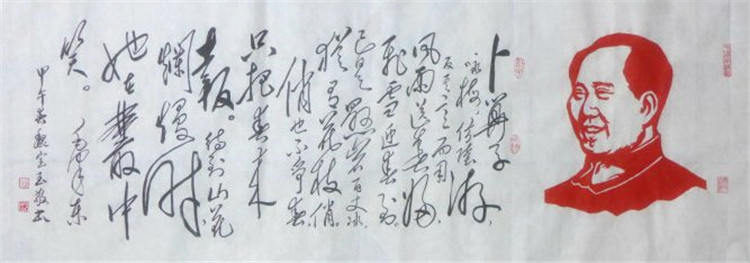 卜算子
咏梅
反其意而用
风雨送春归,
飛雪迎春到。
已是懸岩百丈冰,
犹有花枝俏。
俏也不争春,
只把春来
報。待到山花
爛熳时
她在叢中
笑。毛泽东
甲午